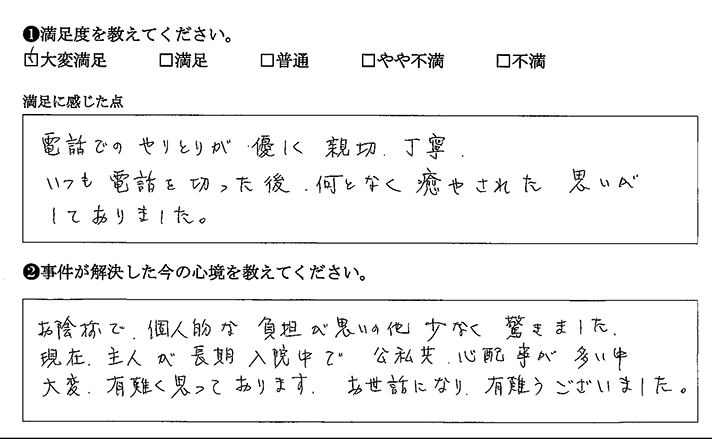 ❶満足度を教えてください。
☑大変満足 □満足 □普通 □やや不満 □不満
満足に感じた点
電話でのやりとりが優しく 親切、丁寧、
いつも電話を切った後、何となく癒やされた 思いが
してありました。
❷事件が解決した今の心境を教えてください。
お陰様で、個人的な負担が思いの他少なく驚きました、
現在、主人が長期入院中で公私共、心配事が多い中
大変、有難く思っております、お世話になり、有難うございました。